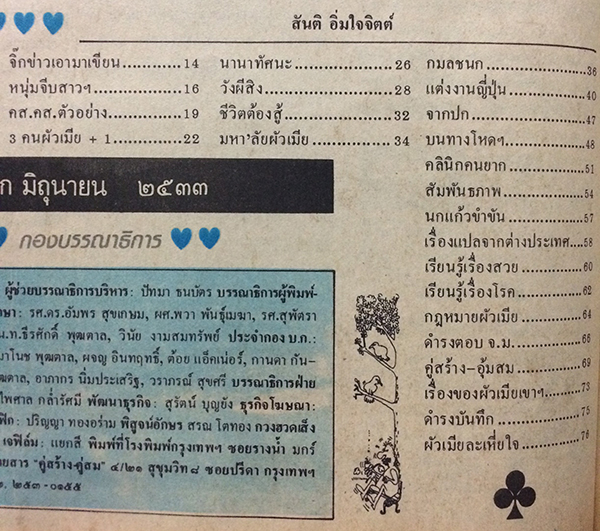 สันติ อิ่มใจจิตต์
จิ๊กข่าวเอามาเขียน 14
หนุ่มจีบสาวฯ 16
คส.คส.ตัวอย่าง 19
3 คนผัวเมีย + 1 22
นานาทัศนะ 26
วังผีสิง 28
ชีวิตต้องสู้ 32
มหา'ลัยผัวเมีย 34
กมลชนก 36
แต่งงานญี่ปุ่น 40
จากปก 47
บนทางโหดฯ 48
คลินิกคนยาก 51
สัมพันธภาพ 54
นกแก้วขำขัน 57
เรื่องแปลจากต่างประเทศ 58
เรียนรู้เรื่องสวย 60
เรียนรู้เรื่องโรค 62
กฎหมายผัวเมีย 64
ดำรงตอบ จ.ม. 66
คู่สร้าง-อุ้มสม 69
เรื่องของผัวเมียเขาฯ 73
ดำรงบันทึก 75
ผัวเมียละเหี่ยใจ 76
ก มิถุนายน ๒๕๓๓
กองบรรณาธิการ
ผู้ช่วยบรรณาธิการบริหาร: ปัทมา ธนบัตร บรรณาธิการผู้พิมพ์-
ษา: รศ.ดร.อัมพร สุขเกษม, ผศ.พวา พันธุ์เมฆา, รศ.สุพัตรา
น.ท.ธีรศักดิ์ พุฒตาล, วินัย งามสมทรัพย์ ประจำกอง บ.ก.:
มาโนช พุฒตาล, ผจญ อินทฤทธิ์, ต้อย แอ็คเน่อร์, กานดา กัน-
ฒตาล, อาภากร นิ่มประเสริฐ, วราภรณ์ สุขศรี บรรณาธิการฝ่าย
ไพศาล กล่ำรัศมี พัฒนาธุรกิจ: สุรัตน์ บุญยัง ธุรกิจโฆษณา:
ฟิก: ปริญญา ทองอร่าม พิสูจน์อักษร สรณ โตทอง กวงฮวดเส็ง
เจฟิล์ม: แยกสี พิมพ์ที่โรงพิมพ์กรุงเทพฯ ซอยรางน้ำ มกร์
ยสาร "คู่สร้าง-คู่สม" ๔/๒๑ สุขุมวิท ๘ ซอยปรีดา กรุงเทพฯ
๒๕๓-๐๑๕๕